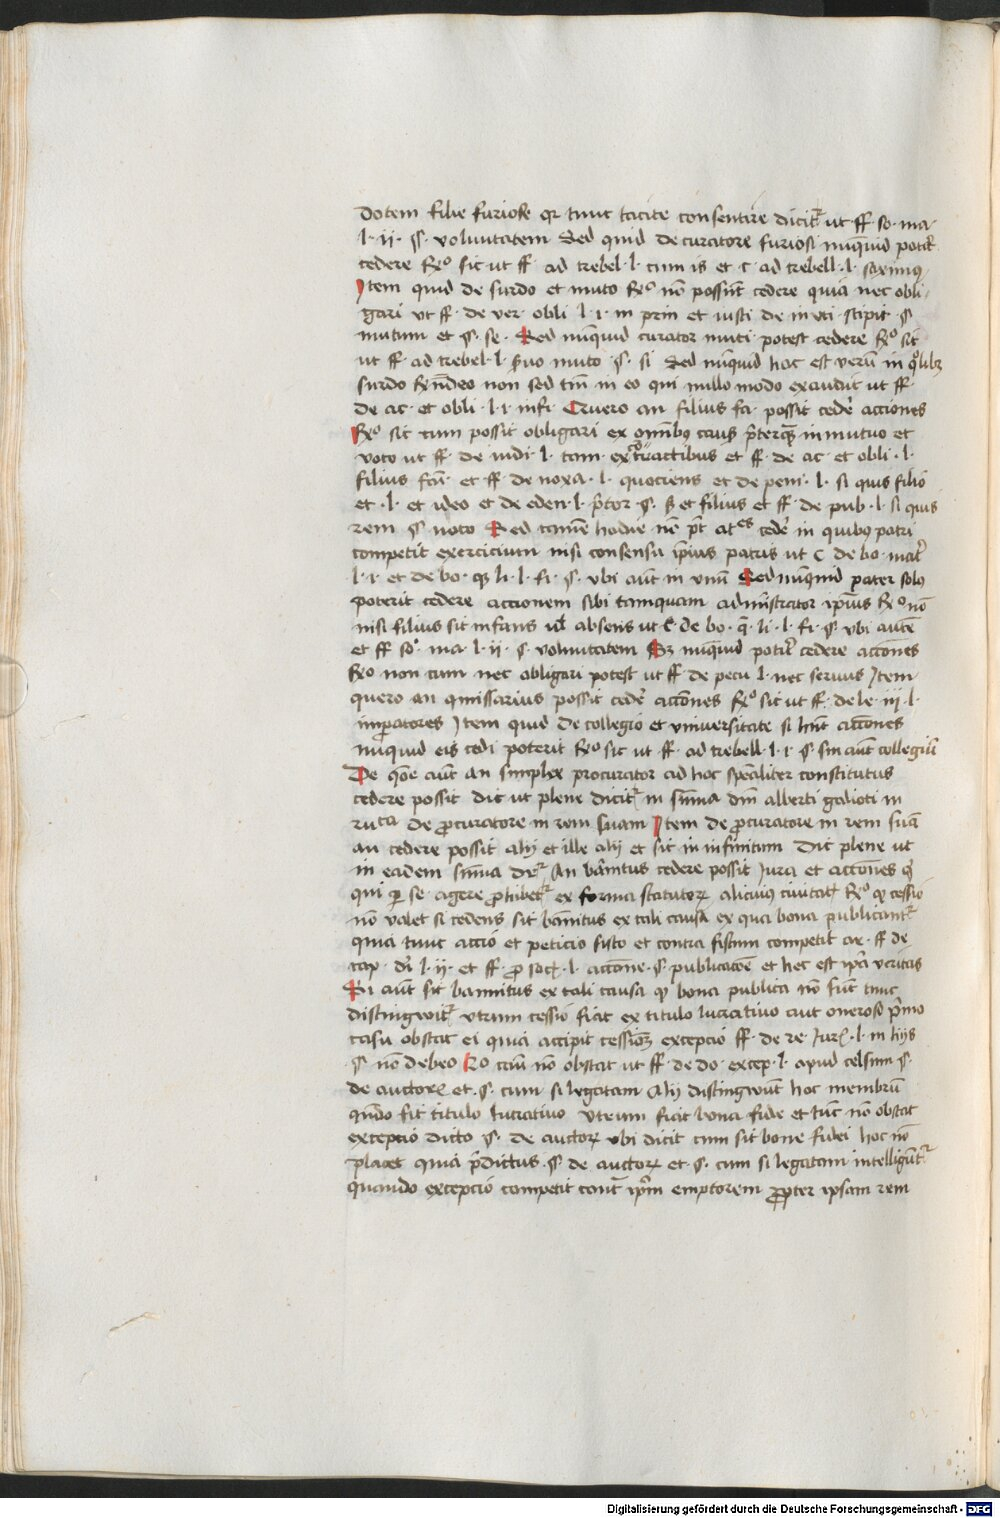 dotem filie furiose qr tunc tacite consentire dicitr ut ff so. ma.
l. ii. §. voluntatem Sed quid de curatore furiosi nuquid poterit
cedere Ro sic ut ff ad trebel. l. cum is et c ad trebell. l.
Item quid de surdo et muto Ro no possunt cedere quia nec obli
gari ut ff. de ver obli l. i. in prin et insti de inuti stipu §
mutum et §. se. Sed nunquid curator muti potest cedere Ro sic
ut ff ad trebel. l. seruo muto §. si Sed nunquid hoc est veru in quolibz
surdo Rndeo non sed tm in eo qui nullo modo exaudit ut ff
de ac et obli. l. i. infi. Quero an filius fa possit cedere acciones
Ro sic cum possit obligari ex omnibus causis preterquam in mutuo et
voto ut ff de iudi l. tam ex contractibus et ff de ac et obli. l.
filius fam et ff de noxa. l. quociens et de peni. l. si quis filio
et. l. et ideo et de eden. l. pretor §. sed et filius et ff de pub. l. si quis
rem §. noto Sed tamen hodie non potest cedere in quibus patri
competit exercicium nisi consensu ipsius patris ut C de bo. mater
l. i. et de bo. que li. l. fi. §. ubi aut in unum Sed nunquid pater solus
poterit cedere accionem sibi tamquam administrator ipsius Ro non
nisi filius sit infans vel absens ut C. de bo. q. li. l. fi. §. ubi autem
et ff so. ma. l. ii. §. voluntatem Sz nunquid poterit cedere acciones
Ro non cum nec obligari potest ut ff de pecu l. nec seruus Item
quero an commissarius possit cedere acciones Ro sic ut ff de le. iii. l.
imperatores Item quid de collegio et universitate si hnt acciones
nuquid eis cedi poterit Ro sic ut ff ad trebell. l. i. §. sin aut collegium
De qone aut an simplex procurator ad hoc specialiter constitutus
cedere possit dic ut plene dicitr in summa dni alberti galioti in
ruca de procuratore in rem suam Item de procuratore in rem suam
an cedere possit alij et ille alij et sic in infinitum Dic plene ut
in eadem summa An banitus cedere possit Jura et acciones
qui per se agere prohibetr ex forma statutorum alicuius civitatis Ro q cessio
non valet si cedens sit bannitus ex tali causa ex qua bona publicantr
quia tunc accio et peticio fisco et contra fiscum competit ar. ff de
cap. di l. ii. et ff pro soc. l. accione §. publicacione et hec est ipsa veritas
Si aut sit bannitus ex tali causa quod bona publica non sunt tunc
distingwitr utrum cessio fiat ex titulo lucrativo aut oneroso primo
casu obstat ei quia accipit cessionem excepcio ff. de re Jur. l. in hijs
§ non debeo casu non obstat ut ff de do. excep. l. apud celsum §.
de auctore et. §. cum si legatam Alij distingwunt hoc membrum
quando sit titulo lucrativo utrum bona fide et tunc non obstat
excepcio dicto §. de auctore ubi dicit cum sit bone fidei hoc non
placet quia predictus. §. de auctore et. §. cum si legatam intelliguntr
quando excepcio competit contra ipsum emptorem propter ipsam rem
Digitalisierung gefördert durch die Deutsche Forschungsgemeinschaft - DFG